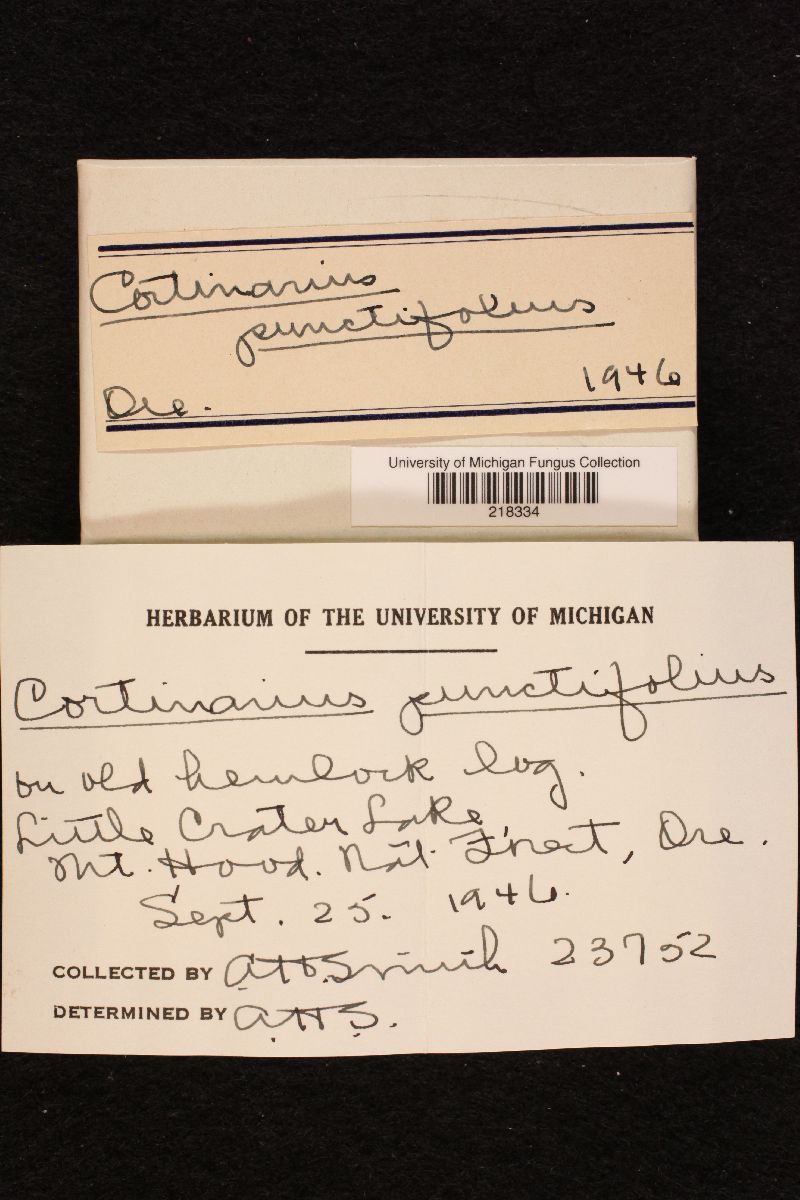 Cortinarius
punctifolius
Ore.
1946
University of Michigan Fungus Collection
218334
HERBARIUM OF THE UNIVERSITY OF MICHIGAN
Cortinarius punctifolius
on old hemlock log.
Little Crater Lake
Mt. Hood. Nat. Forest, Ore.
Sept. 25. 1946.
COLLECTED BY A.H.Smith 23752
DETERMINED BY A.H.S.